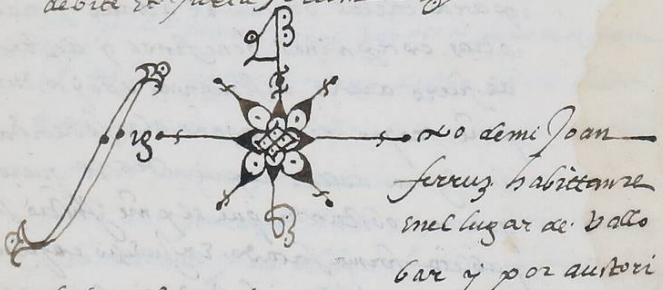 Sig no de mi Joan
ferruz habittante
en el lugar de Vallo
bar y por auttori